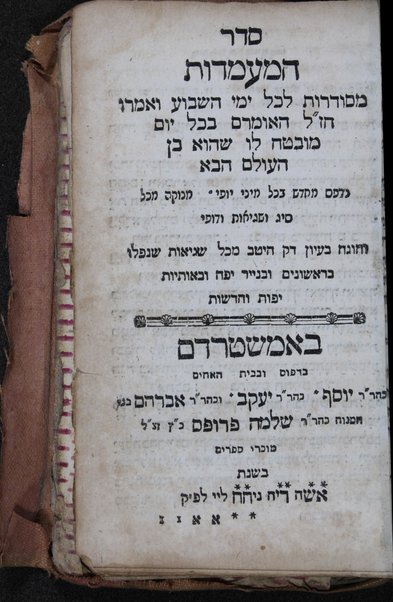 סדר
המעמדות
מסודרות לכל ימי השבוע ואמרו
חז״ל האומרם בכל יום
מובטח לו שהוא בן
העולם הבא
נדפס מחדש בכל מיני יופי׳ מנוקה מכל
סיג ושגיאות ודופי
והוגה בעיון דק היטב מכל שגיאות שנפלו
בראשונים ובנייר יפה ובאותיות
יפות וחדשות
באמשטרדם
בדפוס ובבית האחים
כהר״ר יוסף׳ כהר״ר יעקב׳ וכהר״ר אברהם בני
המנוח כהר״ר שלמה פרופס כ״ץ זצ״ל
מוכרי ספרים
בשנת
אשה ריח ניחח ליי לפ״ק